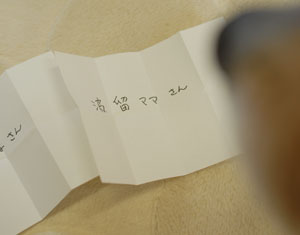 さん
濱留ママさん